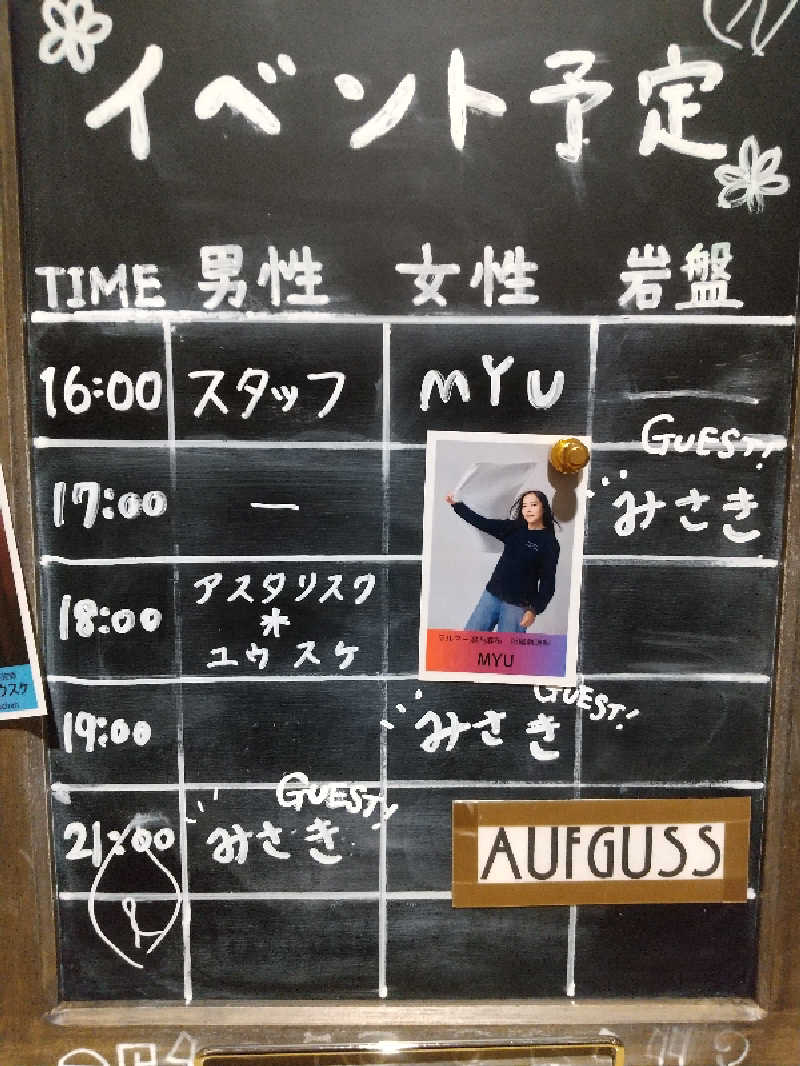 イベント予定
TIME 男性 女性 岩盤
16:00 スタッフ MYU
GUEST!
17:00 ー みさき
18:00 アスタリスク
*
ユウスケ
MYU
GUEST!
19:00 みさき
GUEST!
21:00 みさき
AUFGUSS